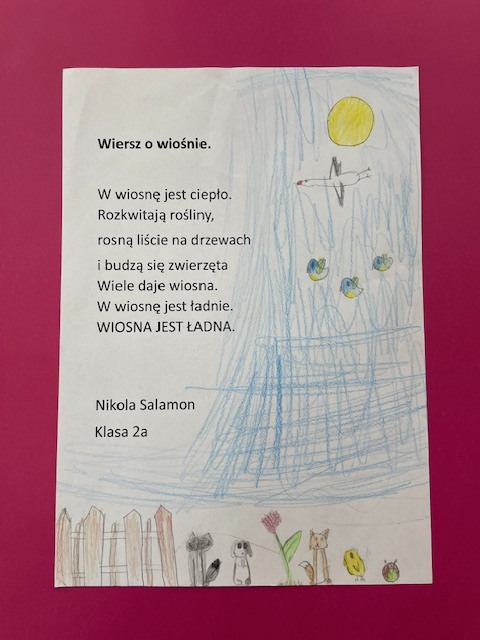 Wiersz o wiośnie.
W wiosnę jest ciepło.
Rozkwitają rośliny,
rosną liście na drzewach
i budzą się zwierzęta
Wiele daje wiosna.
W wiosnę jest ładnie.
WIOSNA JEST ŁADNA.
Nikola Salamon
Klasa 2a